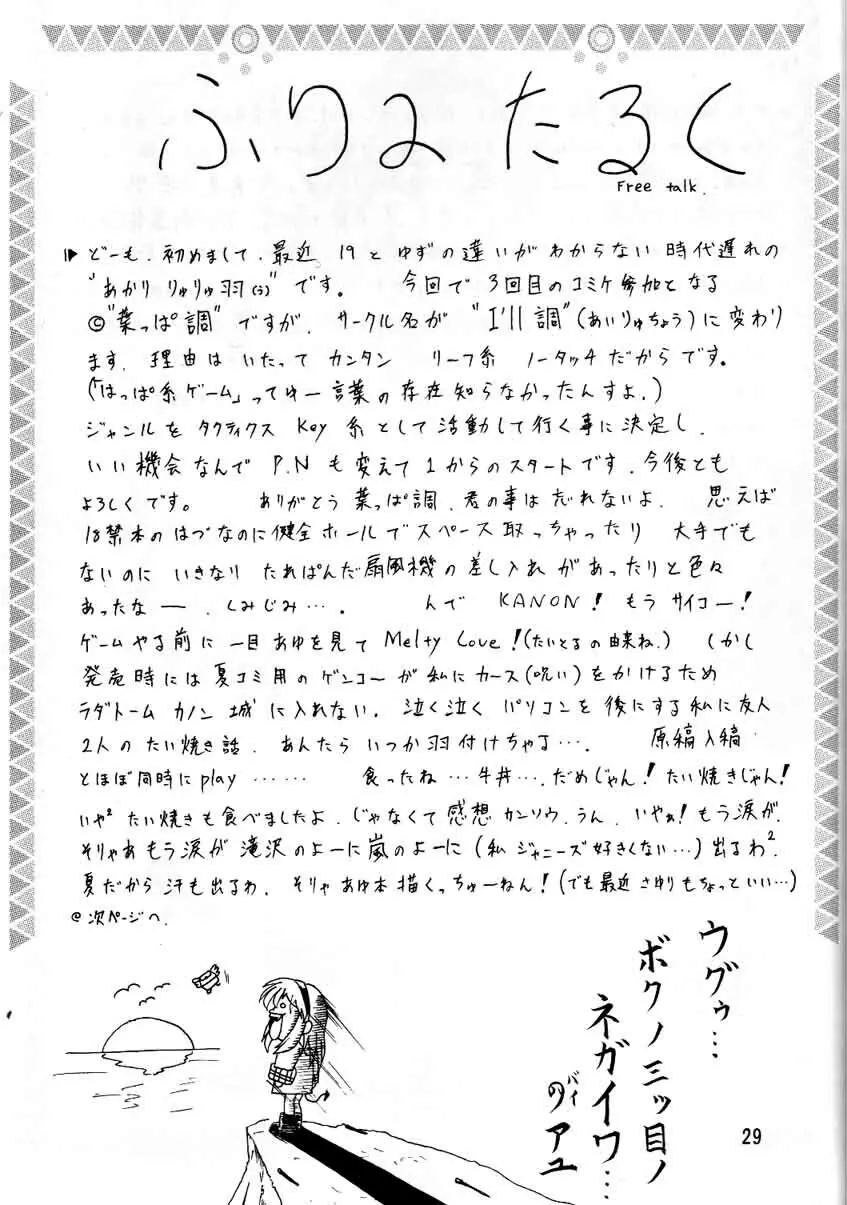 ふり〜たるく
Free talk.
どーも、初めまして、最近 19とゆずの違いがわからない時代遅れの
"あかり りゅりゅ羽(う)"です。 今回で3回目のコミケ参加となる
◎"葉っぱ調"ですが、サークル名が "I'll調"(あいりゅちょう)に変わり
ます、理由はいたってカンタン リーフ系 ノータッチだからです。
(「はっぱ系ゲーム」ってゆー言葉の存在知らなかったんすよ、)
ジャンルを タクティクス Key 系として活動して行く事に決定し、
いい機会なんで P.Nも変えて1からのスタートです、今後とも
よろしくです。 ありがとう葉っぱ調、君の事は忘れないよ、 思えば
18禁本のはづなのに健全ホールでスペース取っちゃったり 大手でも
ないのに いきなり たれぱんだ扇風機の差し入れがあったりと色々
あったなー、しみじみ…。 んで KANON! もうサイコー!
ゲームやる前に一目あゆを見てMelty Love!(たいとるの由来ね、) しかし
発売時には夏コミ用のゲンコーが私にカース(呪い)をかけるため
ラダトーム カノン 城に入れない、泣く泣く パソコンを後にする私に友人
2人のたい焼き話、あんたらいつか羽付けちゃる…、 原稿入稿
とほぼ同時にplay …… 食ったね…牛丼…、だめじゃん!たい焼きじゃん!
いや²たい焼きも食べましたよ、じゃなくて感想カンソウ、うん、いやぁ!もう涙が、
そりゃあもう涙が滝沢のよーに嵐のよーに(私ジャニーズ好きくない…)出るわ²、
夏だから汗も出るわ、そりゃあゆ本描くっちゅーねん!(でも最近さゆりもちょっといい…)
@次ページへ、
ウグゥ…
ボクノ三ッ目ノ
ネガイワ…
のツ バイ アユ
29